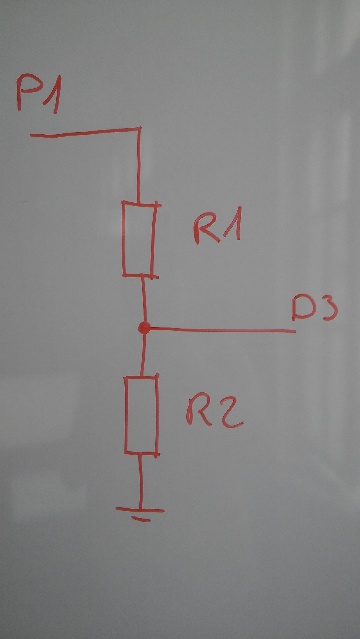 P1
R1
D3
R2